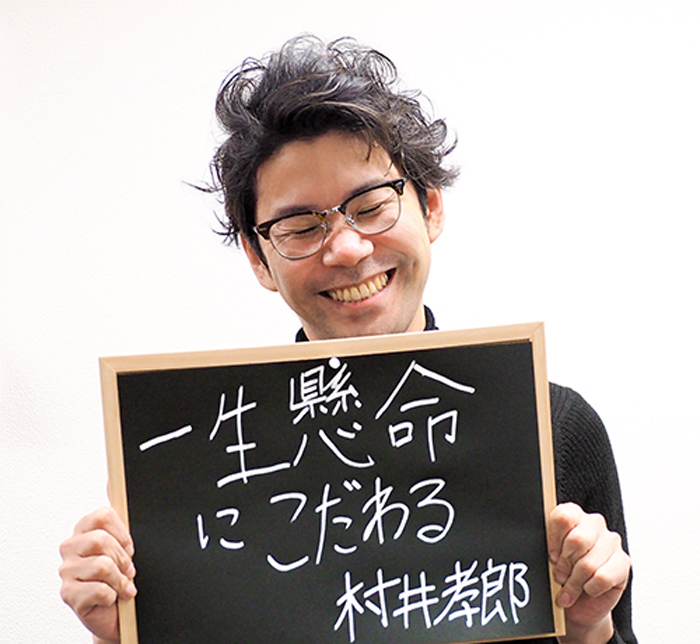 一生懸命
にこだわる
村井孝郎